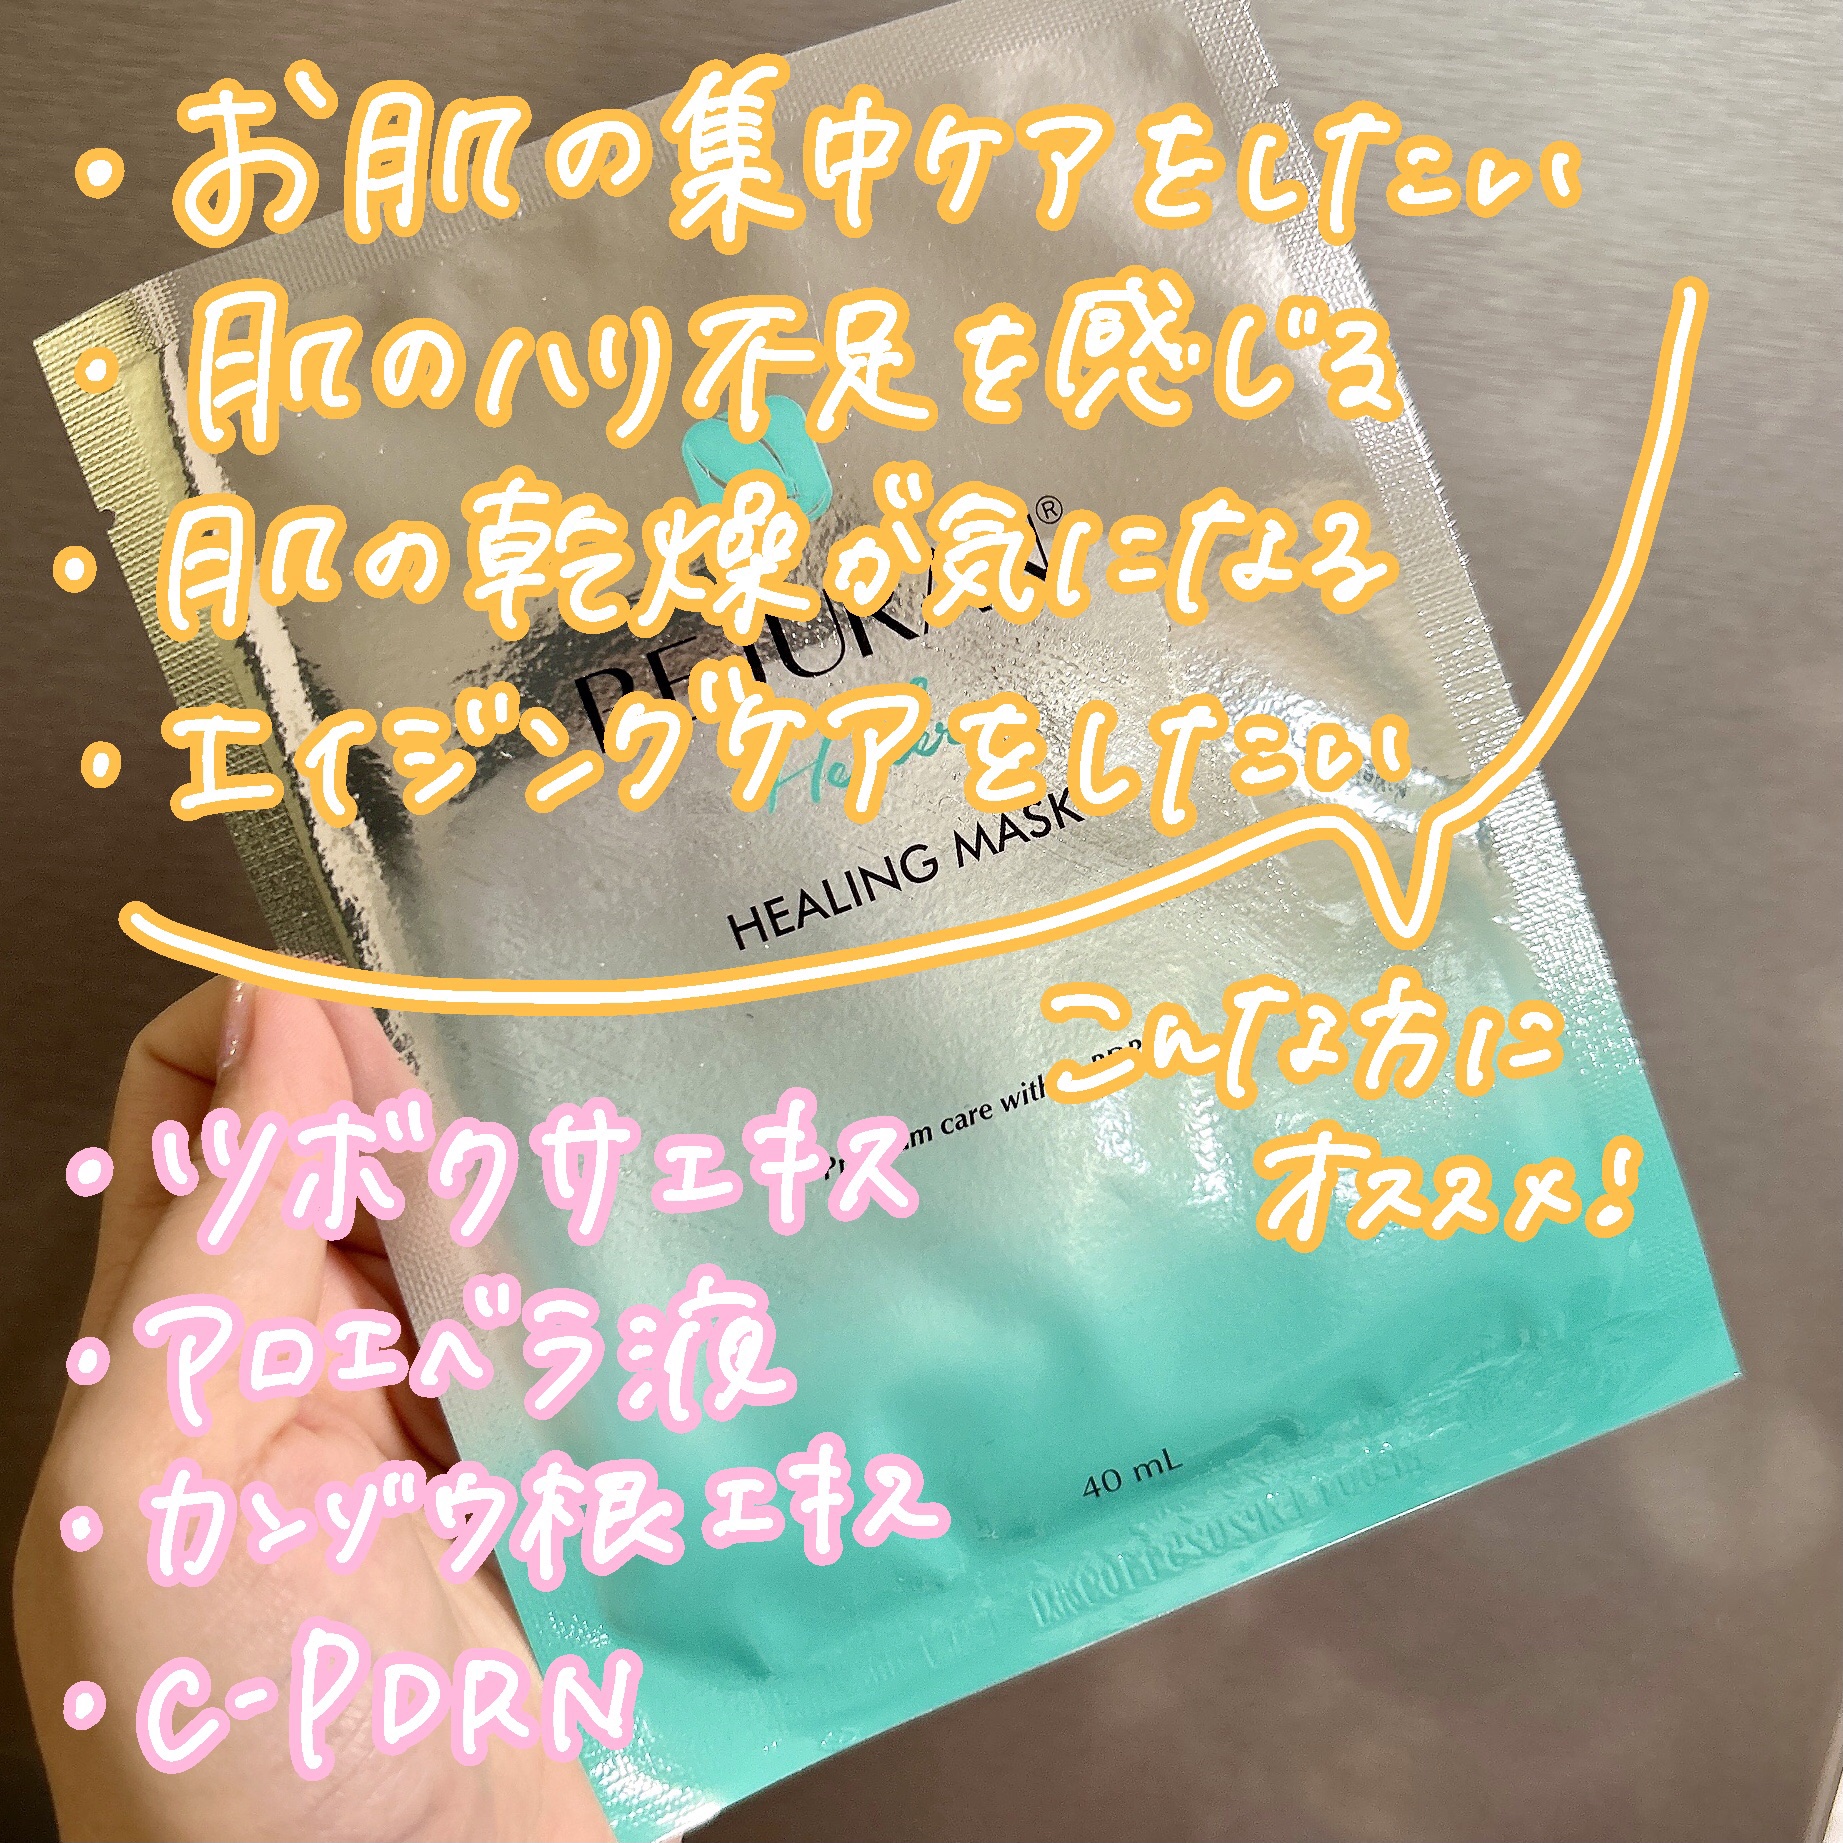 ・お肌の集中ケアをしたい
・肌のハリ不足を感じる
・肌の乾燥が気になる
・エイジングケアをしたい
こんな方に
オススメ!
・ツボクサエキス
・アロエベラ液
・カンゾウ根エキス
・C-PDRN
®
HEALING MASK
care with
40 mL